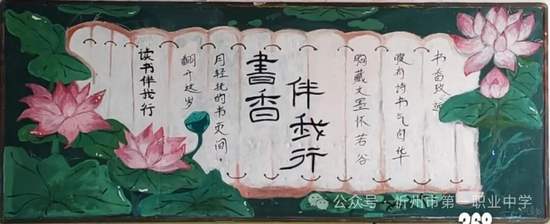 读书伴我行
翻开这岁
月轻抚的书页间,
書香
伴我行
胸藏文墨怀若谷
腹有诗书气自华
书香致远
公众号 · 忻州市第一职业中学